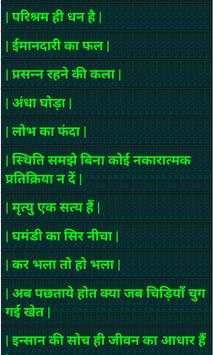 | परिश्रम ही धन है |
| ईमानदारी का फल |
| प्रसन्न रहने की कला |
| अंधा घोड़ा |
| लोभ का फंदा |
| स्थिति समझे बिना कोई नकारात्मक
प्रतिक्रिया न दें |
| मृत्यु एक सत्य हैं |
| घमंडी का सिर नीचा |
| कर भला तो हो भला |
| अब पछताये होत क्या जब चिड़ियाँ चुग
गई खेत |
| इन्सान की सोच ही जीवन का आधार हैं